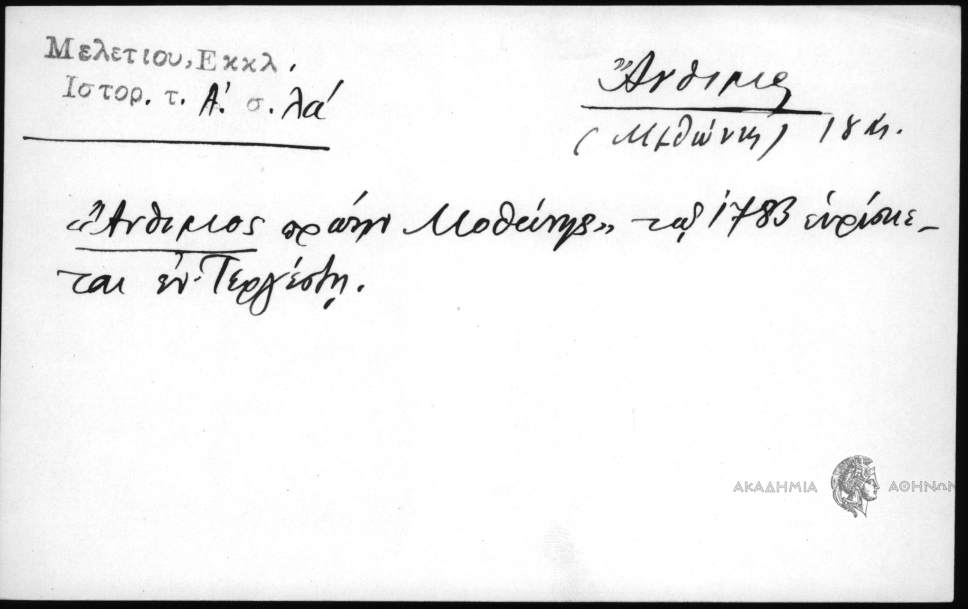 Μελετιου, Εκκλ.
Ιστορ. τ. Α΄. σ. λά
Ἄνθιμος
(Μεθώνης) 18 αι.
«Ἄνθιμος πρώην Μοθώνης» τῷ 1783 εὑρίσκε-
ται ἐν Τεργέστῃ.
ΑΚΑΔΗΜΙΑ ΑΘΗΝΩΝ